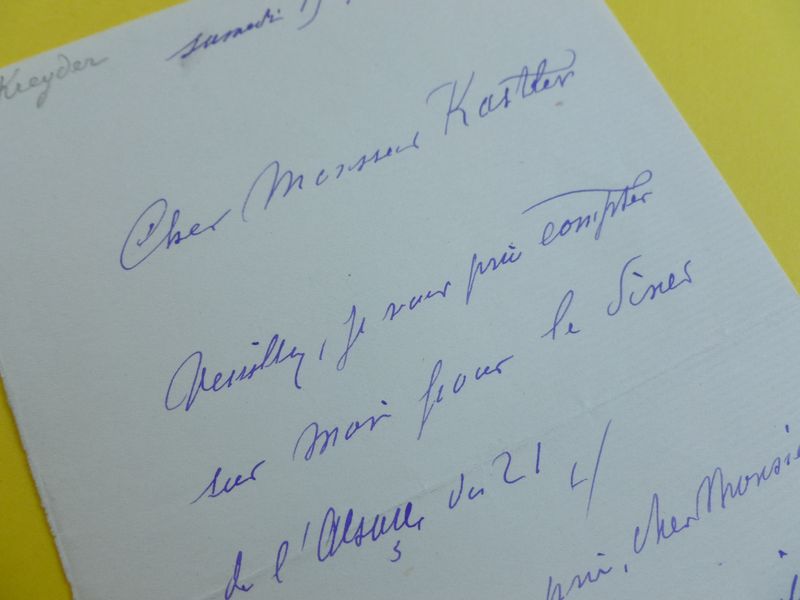 Kreyder
samedi 19
Cher Monsieur Kastler
Veuillez, je vous prie compter
sur moi pour le diner
de l'Alsace du 21
prie, cher Monsie